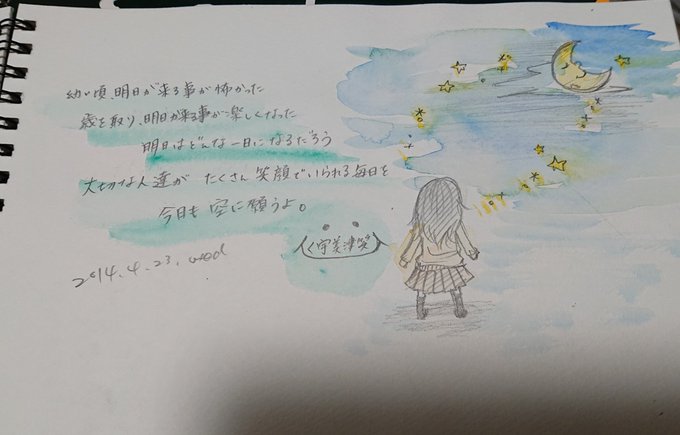 幼い頃、明日が来る事が怖かった
歳を取り、明日が来る事が楽しくなった
明日はどんな一日になるだろう
大切な人達が たくさん 笑顔でいられる毎日を
今日も 空に願うよ。
2014.4.23. wed